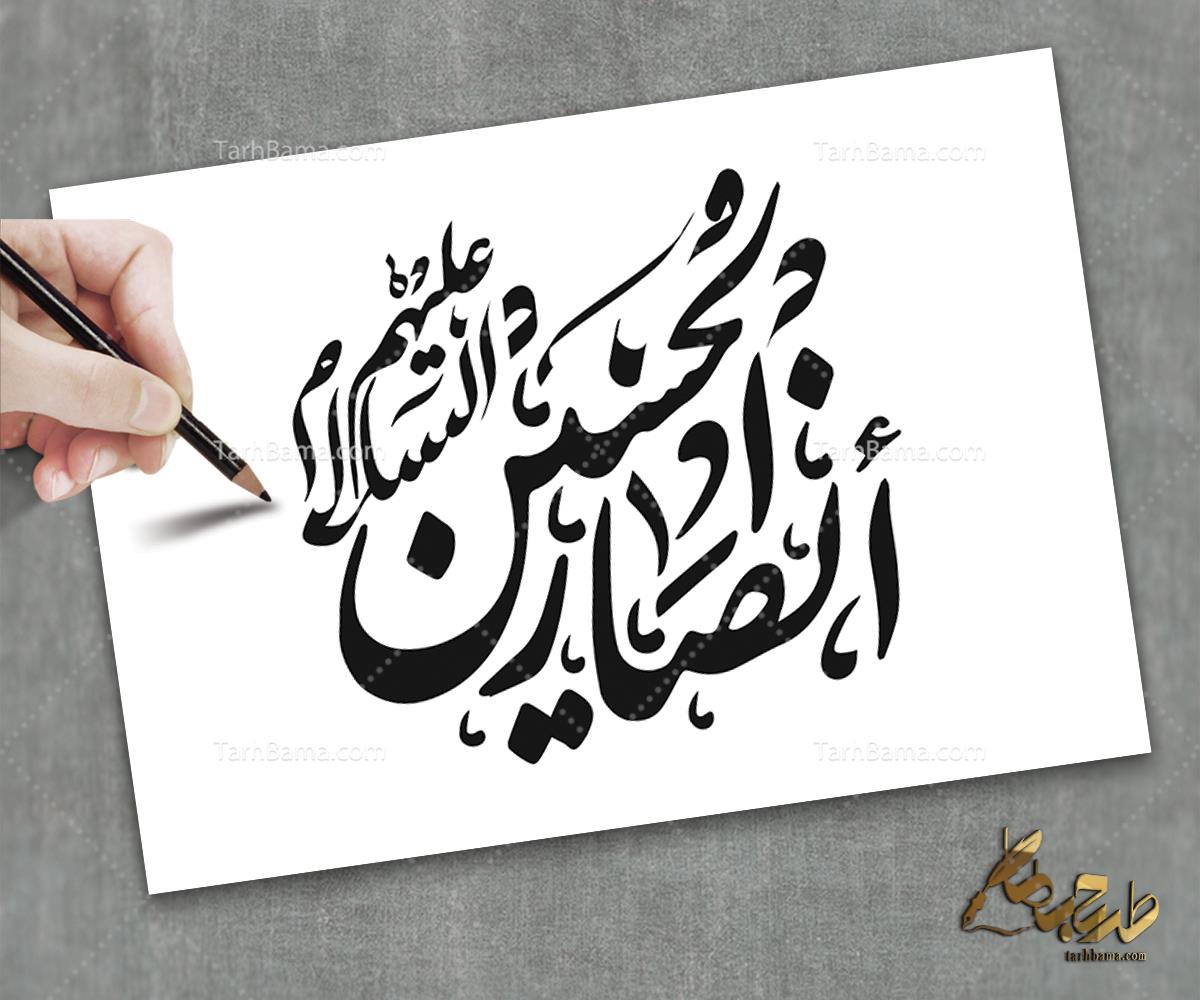 TarhBama.com TarhBama.com
أنصار الحسین
علیهم السلام
TarhBama.com TarhBama.com
TarhBama.com TarhBama.com
طرح با ما
tarhbama.com